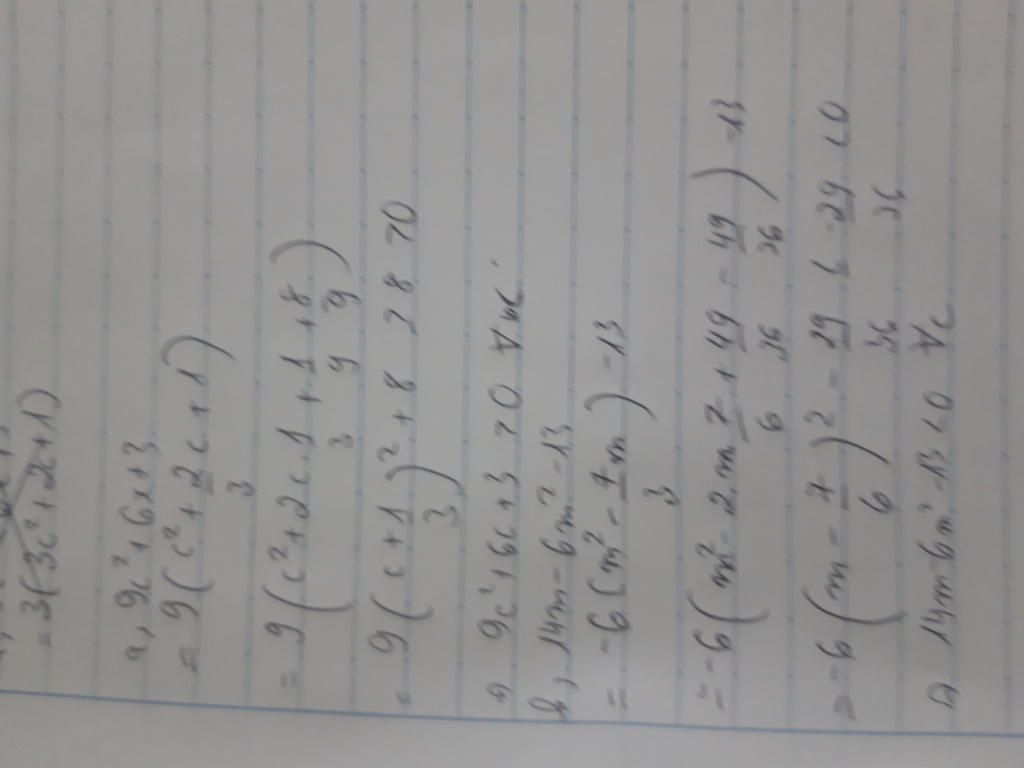 = 3(3c² + 2c + 1)
a, 9c² + 6x + 3
= 9(c² + 2/3 c + 1)
= 9(c² + 2c.1/3 + 1/9 + 8/9)
= 9(c + 1/3)² + 8 ≥ 8 > 0
=> 9c² + 6c + 3 > 0 ∀
b, 14m - 6m² - 13
= -6(m² - 7/3 m) - 13
= -6(m² - 2.m 7/6 + 49/36 - 49/36) - 13
= -6(m - 7/6)² - 29/36 ≤ -29/36 < 0
=> 14m - 6m² - 13 < 0 ∀c